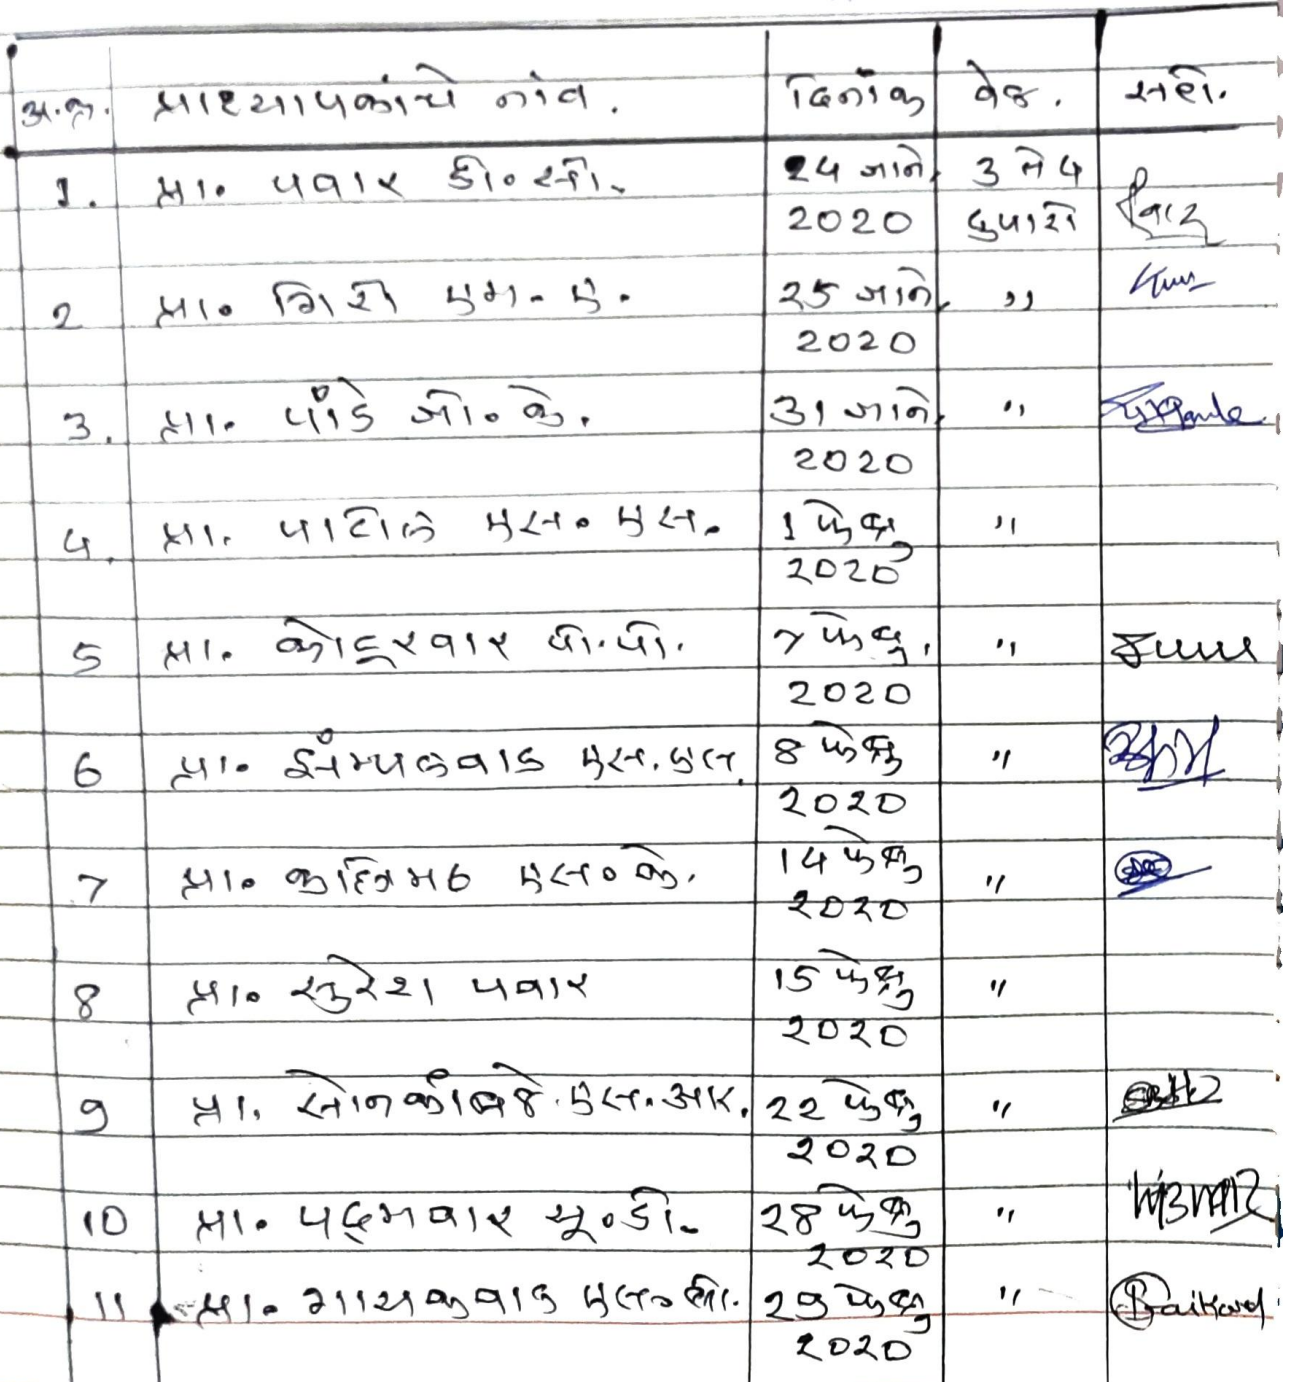 अ.क्र. प्राध्यापकांचे नांव. दिनांक वेळ. सही.
1. प्रा. पवार डी. सी. 24 जाने. 3 ते 4
2020 दुपारी
2 प्रा. गिरी एम. ए. 25 जाने. "
2020
3. प्रा. पाँडे जी. के. 31 जाने. "
2020
4. प्रा. पाटील एस. एस. 1 फेब्रु "
2020
5 प्रा. कोटूरवार पी. पी. 7 फेब्रु. "
2020
6 प्रा. एस. एल. 8 फेब्रु "
2020
7 प्रा. एस. के. 14 फेब्रु "
2020
8 प्रा. सुरेश पवार 15 फेब्रु "
2020
9 प्रा. सोनकांबळे एस. आर. 22 फेब्रु "
2020
10 प्रा. पद्मवार यू. डी. 28 फेब्रु "
2020
11 प्रा. गायकवाड एस. बी. 29 फेब्रु "
2020